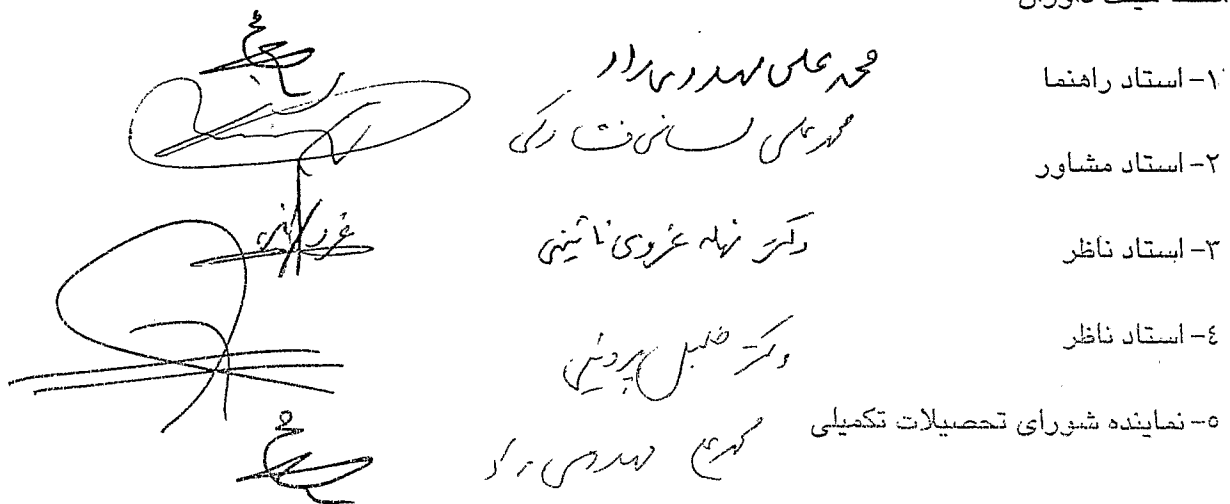 ۱- استاد راهنما محمد علی مهدوی راد
۲- استاد مشاور محمد علی لسانی فشارکی
۳- استاد ناظر دکتر نهله غروی نائینی
٤- استاد ناظر دکتر خلیل پروینی
٥- نماینده شورای تحصیلات تکمیلی مهدوی راد